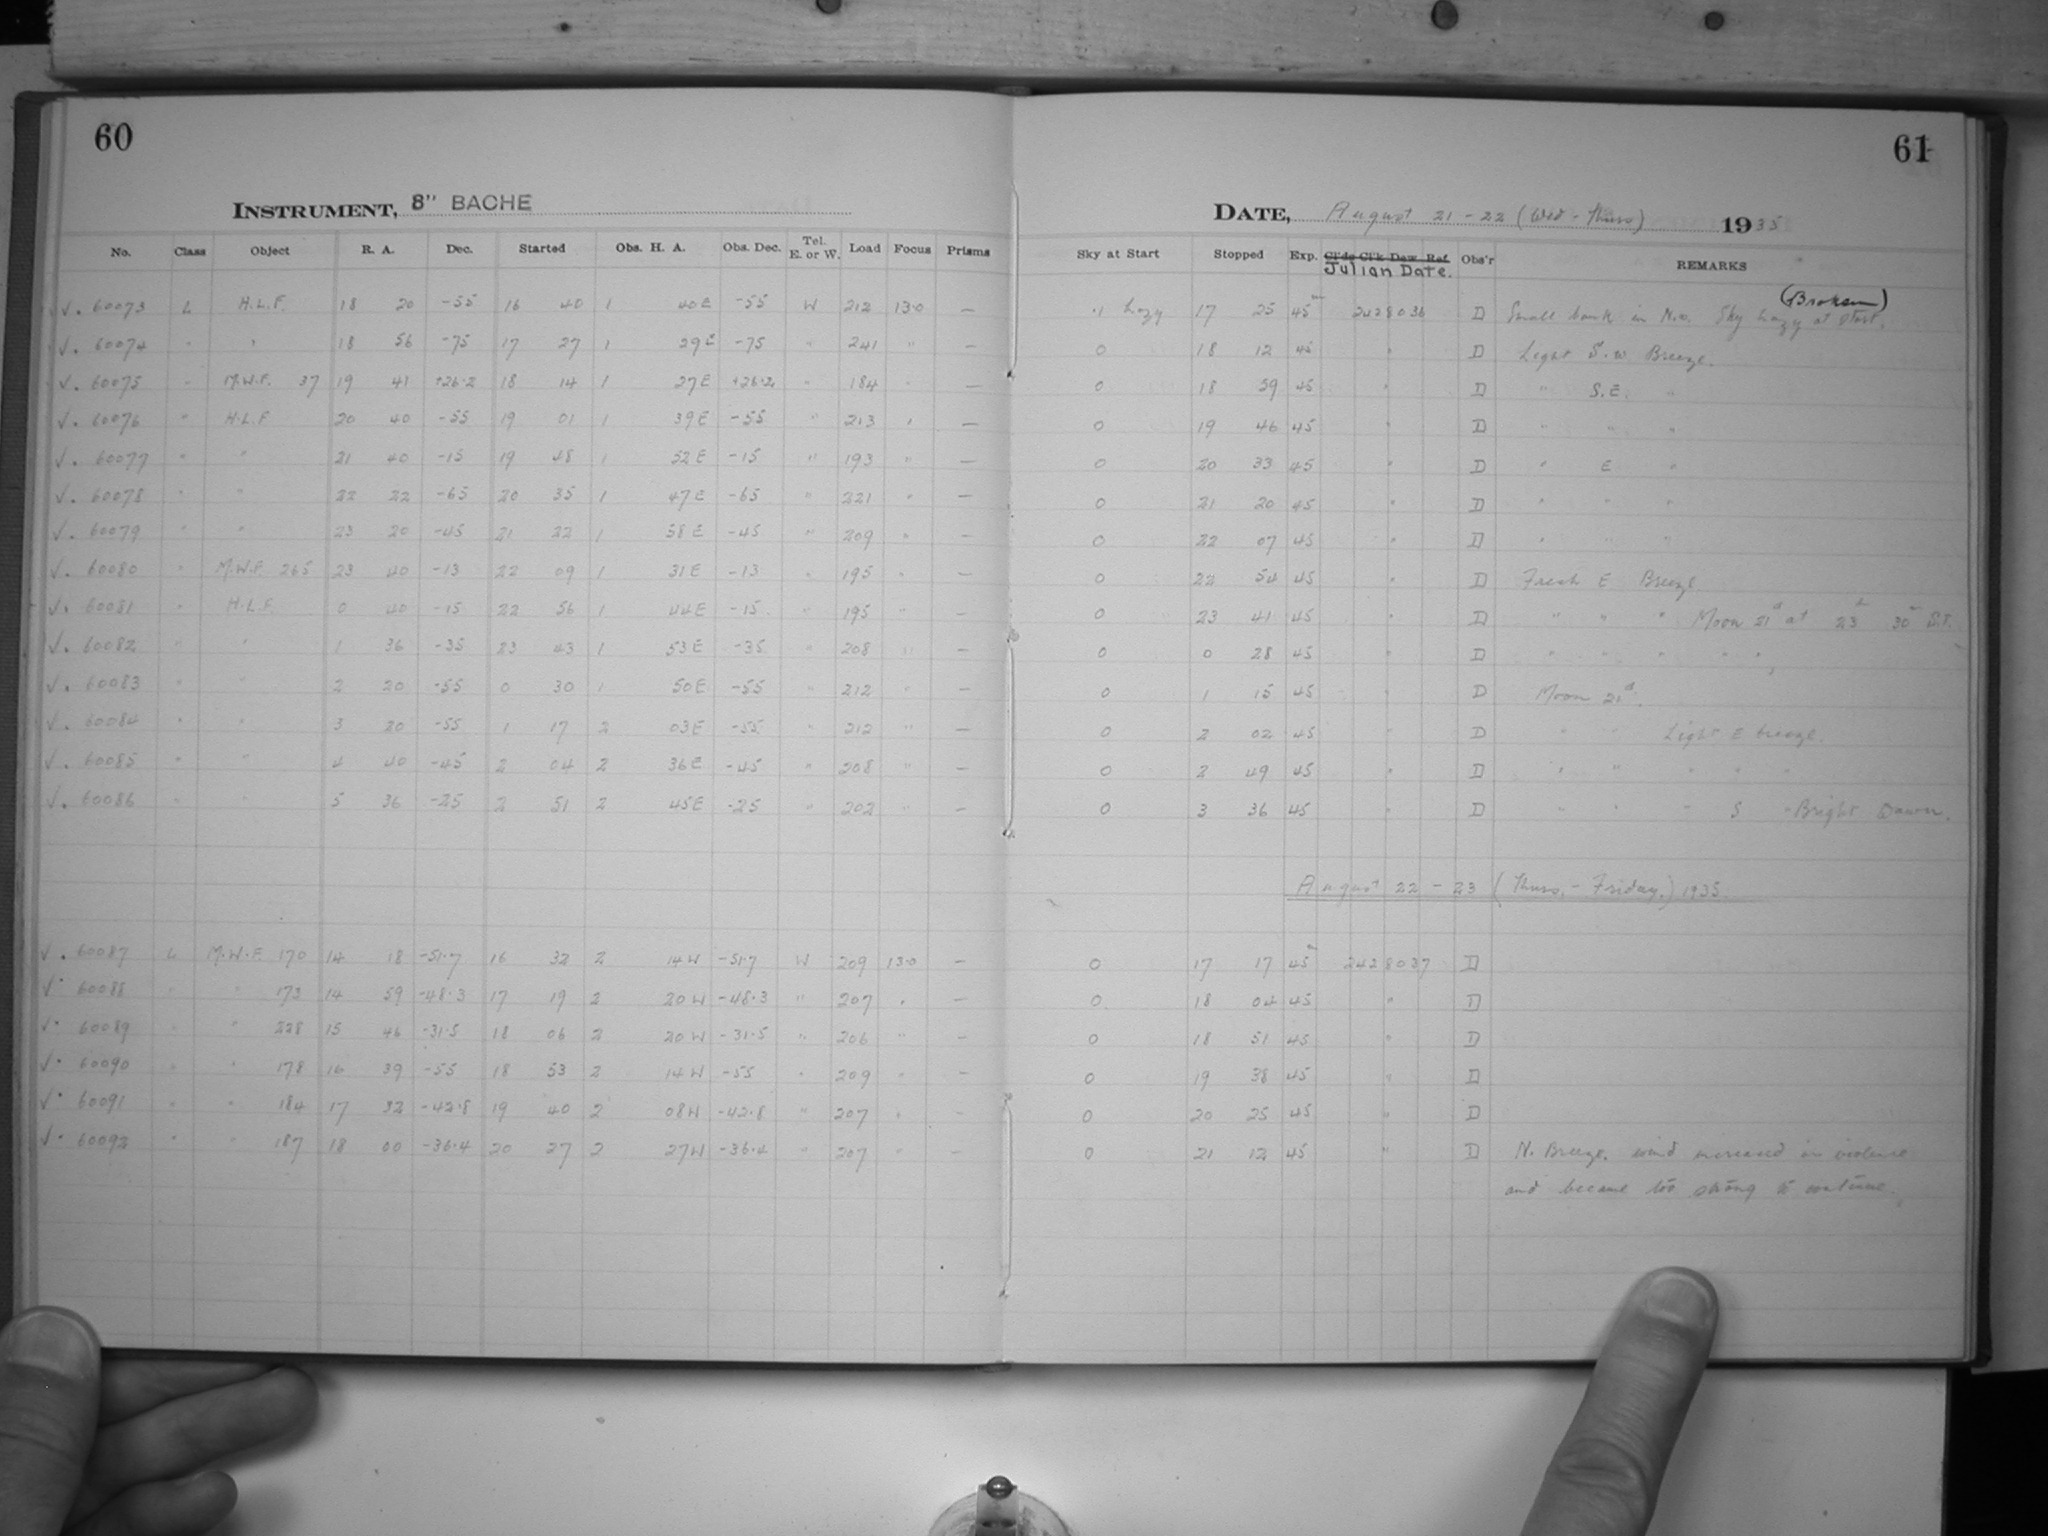 60
61
INSTRUMENT, 8" BACHE
DATE, August 21 - 22 (Wed - Thurs) 1935
No. Class Object R. A. Dec. Started Obs. H. A. Obs. Dec. Tel. E. or W. Load Focus Prisms Sky at Start Stopped Exp. Cl'ds Cl'k Dew Ref Julian Date. Obs'r REMARKS
√. 60073 L H.L.F. 18 20 -55 16 40 1 40E -55 W 212 13.0 — .1 hazy 17 25 45m 2428036 D Small bank in N.W. Sky hazy at start. (Broken)
√. 60074 " " 18 56 -75 17 27 1 29E -75 " 241 " — 0 18 12 45 " D Light S.W Breeze.
√. 60075 " M.W.F. 37 19 41 +26.2 18 14 1 27E +26.2 " 184 " — 0 18 59 45 " D " S.E. "
√. 60076 " H.L.F 20 40 -55 19 01 1 39E -55 " 213 " — 0 19 46 45 " D " " "
√. 60077 " " 21 40 -15 19 48 1 52E -15 " 193 " — 0 20 33 45 " D " E "
√. 60078 " " 22 22 -65 20 35 1 47E -65 " 221 " — 0 21 20 45 " D " " "
√. 60079 " " 23 20 -45 21 22 1 58E -45 " 209 " — 0 22 07 45 " D " " "
√. 60080 " M.W.F. 265 23 40 -13 22 09 1 31E -13 " 195 " — 0 22 54 45 " D Fresh E Breeze.
√. 60081 " H.L.F. 0 40 -15 22 56 1 44E -15 " 195 " — 0 23 41 45 " D " " " Moon 21d at 23h 30m S.T.
√. 60082 " " 1 36 -35 23 43 1 53E -35 " 208 " — 0 0 28 45 " D " " " " "
√. 60083 " " 2 20 -55 0 30 1 50E -55 " 212 " — 0 1 15 45 " D Moon 21d.
√. 60084 " " 3 20 -55 1 17 2 03E -55 " 212 " — 0 2 02 45 " D " " Light E breeze.
√. 60085 " " 4 40 -45 2 04 2 36E -45 " 208 " — 0 2 49 45 " D " " " " "
√. 60086 " " 5 36 -25 2 51 2 45E -25 " 202 " — 0 3 36 45 " D " " " S " Bright Dawn.
August 22 - 23 (Thurs. - Friday.) 1935.
√. 60087 L M.W.F. 170 14 18 -51.7 16 32 2 14W -51.7 W 209 13.0 — 0 17 17 45m 2428037 D
√. 60088 " " 173 14 59 -48.3 17 19 2 20W -48.3 " 207 " — 0 18 04 45 " D
√. 60089 " " 228 15 46 -31.5 18 06 2 20W -31.5 " 206 " — 0 18 51 45 " D
√. 60090 " " 178 16 39 -55 18 53 2 14W -55 " 209 " — 0 19 38 45 " D
√. 60091 " " 184 17 32 -42.8 19 40 2 08W -42.8 " 207 " — 0 20 25 45 " D
√. 60092 " " 187 18 00 -36.4 20 27 2 27W -36.4 " 207 " — 0 21 12 45 " D N. Breeze. wind increased in violence
and became too strong to continue.